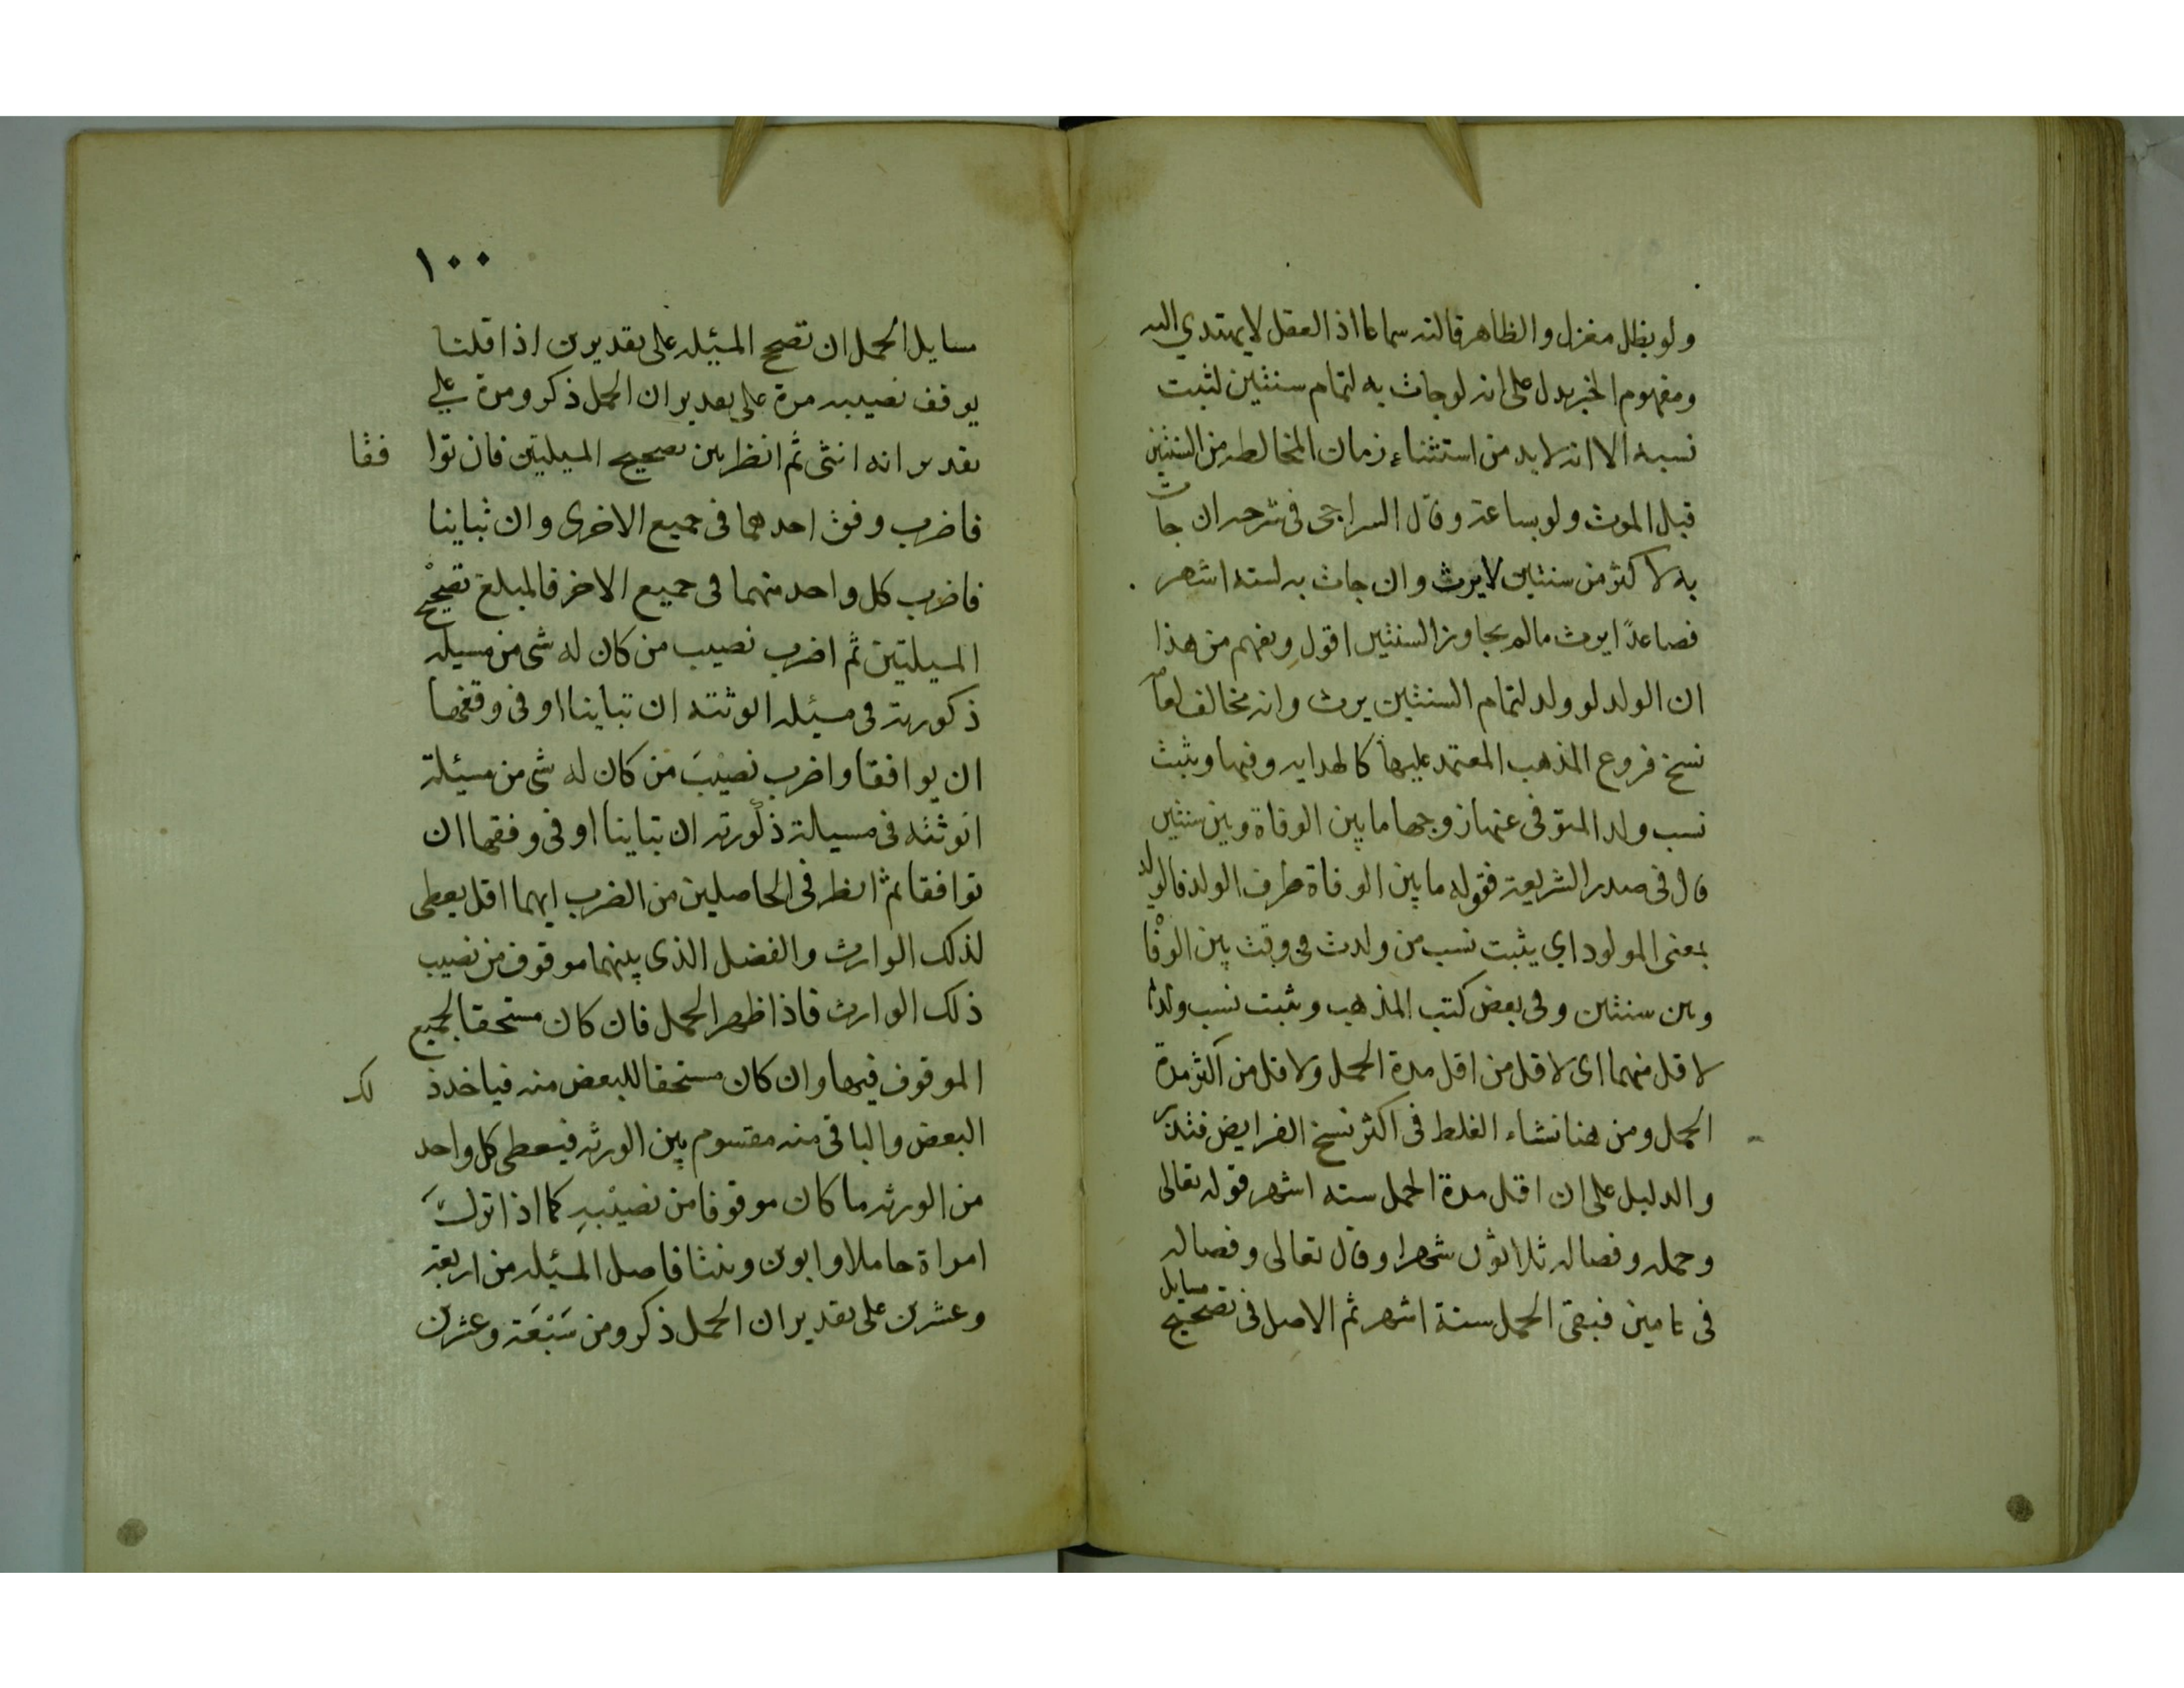 ولو بظل مغزل والظاهر قالته سماعا اذ العقل لا يهتدي اليه
ومفهوم الخبر يدل على انه لو جاث به لتمام سنتين لثبت
نسبه الا انه لا بد من استثناء زمان المخالطه من السنتين
قبل الموث ولو بساعة وقال السراجى فى شرحه ان جاث
به لاكثر من سنتين لا يرث وان جاث به لسته اشهر
فصاعدًا يرث مالم يجاوز السنتين اقول ويفهم من هذا
ان الولد لو ولد لتمام السنتين يرث وانه مخالف لعامه
نسخ فروع المذهب المعتمد عليها كالهدايه وفيها ويثبث
نسب ولد المتوفى عنها زوجها ما بين الوفاة وبين سنتين
قال فى صدر الشريعة فقوله ما بين الوفاة ظرف الولد فالولد
بمعنى المولود اي يثبت نسب من ولدث فى وقث بين الوفاة
وبين سنتين وفى بعض كتب المذهب ويثبت نسب ولدها
لاقل منهما اى لاقل من اقل مدة الحمل ولاقل من اكثر مدة
الحمل ومن هنا نشاء الغلط فى اكثر نسخ الفرايض فتدبر
والدليل على ان اقل مدة الحمل سته اشهر قوله تعالى
وحمله وفصاله ثلاثون شهرا وقال تعالى وفصاله
فى عامين فبقى الحمل ستة اشهر ثم الاصل فى تصحيح مسايل
١٠٠
مسايل الحمل ان تصح المسئله على تقديرين اذا قلنا
يوقف نصيبه مرة على تقدير ان الحمل ذكر ومرة على
تقدير انه انثى ثم انظر بين تصحيح المسيلتين فان توا فقا
فاضرب وفق احدهما فى جميع الاخرى وان تباينا
فاضرب كل واحد منهما فى جميع الاخر فالمبلغ تصحيح
المسيلتين ثم اضرب نصيب من كان له شى من مسيله
ذكورته فى مسئله انوثته ان تباينا او فى وفقها
ان يوافقا واضرب نصيبَ من كان له شى من مسئلة
انوثته فى مسيالة ذكورته ان تباينا او فى وفقها ان
توافقا ثم انظر فى الحاصلين من الضرب ايهما اقل يعطى
لذلك الوارث والفضل الذى بينهما موقوف من نصيب
ذلك الوارث فاذا ظهر الحمل فان كان مستحقا لجميع
الموقوف فيها وان كان مستحقا للبعض منه فياخذ ذ لك
البعض والباقى منه مقسوم بين الورثه فيعطى كل واحد
من الورثه ما كان موقوفا من نصيبه كما اذا ترك
امراة حاملا وابوين وبنتا فاصل المسئله من اربعة
وعشرين على تقدير ان الحمل ذكر ومن سَبْعَة وعشرين